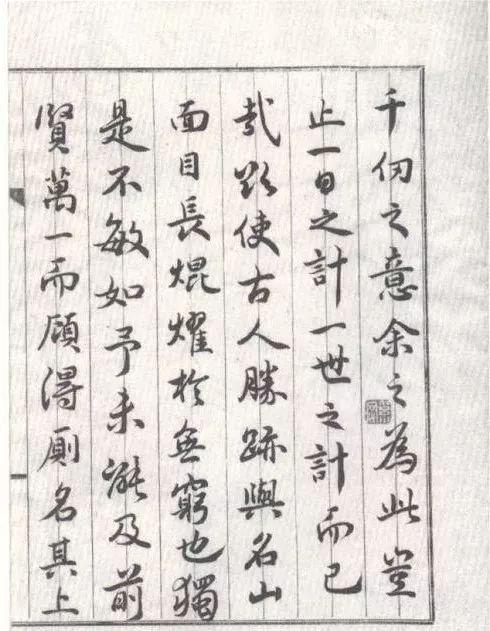 千仞之意余之為此豈
止一日之計一世之計而已
哉欲使古人勝跡與名山
面目長焜燿於無窮也獨
是不敏如予未能及前
賢萬一而顧得廁名其上